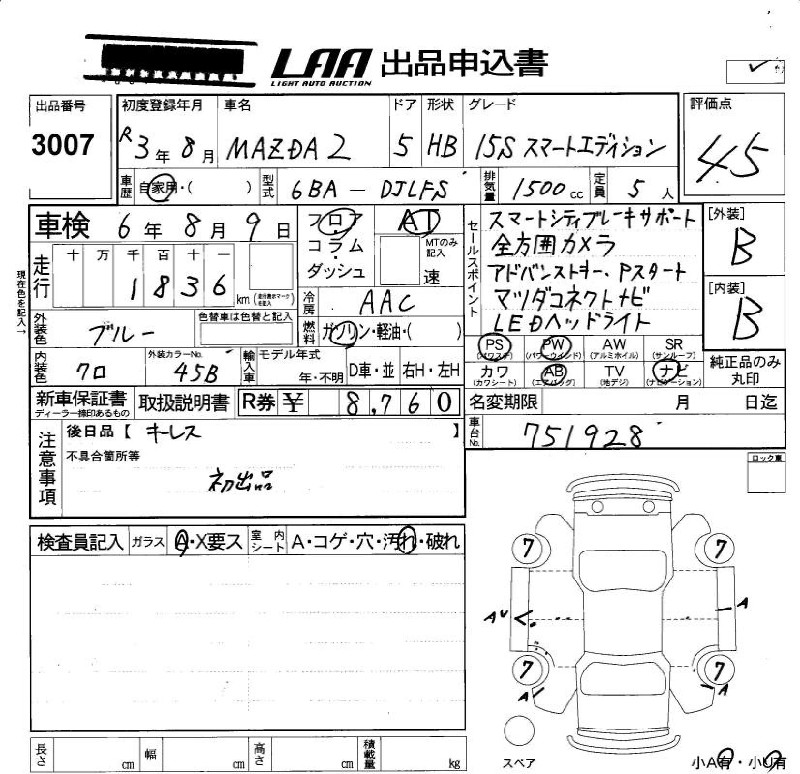 LAA 出品申込書
LIGHT AUTO AUCTION
出品番号 初度登録年月 車名 ドア 形状 グレード 評価点
3007 R3年8月 MAZDA2 5 HB 15S スマートエディション 4.5
車歴 自家用・( ) 型式 6BA-DJLFS 排気量 1500cc 定員 5人
車検 6年8月9日 フロア AT セールスポイント スマートシティブレーキサポート [外装]
コラム MTのみ記入 全方囲カメラ B
走行 十 万 千 百 十 一 ダッシュ 速 アドバンストキー、Pスタート
1836 km (走行表示マークを記入) 冷房 AAC マツダコネクトナビ [内装]
現在色を記入→
外装色 ブルー 色替車は色替と記入 燃料 ガソリン・軽油・( ) LEDヘッドライト B
PS (パワステ) PW (パワーウインド) AW (アルミホイル) SR (サンルーフ)
内装色 クロ 外装カラーNo. 45B 輸入車 モデル年式 年・不明 D車・並 右H・左H カワ (カワシート) AB (エアバッグ) TV (地デジ) ナビ (ナビゲーション) 純正品のみ丸印
新車保証書 ディーラー捺印あるもの 取扱説明書 R券 ¥ 8,760 名変期限 月 日迄
注意事項 後日品【 キーレス 】 車台No. 751928
不具合箇所等
初出品
ロック車
検査員記入 ガラス A・X要ス 室内シート A・コゲ・穴・汚れ・破れ
7 7
A
AU
7 7
A A
長さ cm 幅 cm 高さ cm 積載量 kg
スペア
小A有・小U有